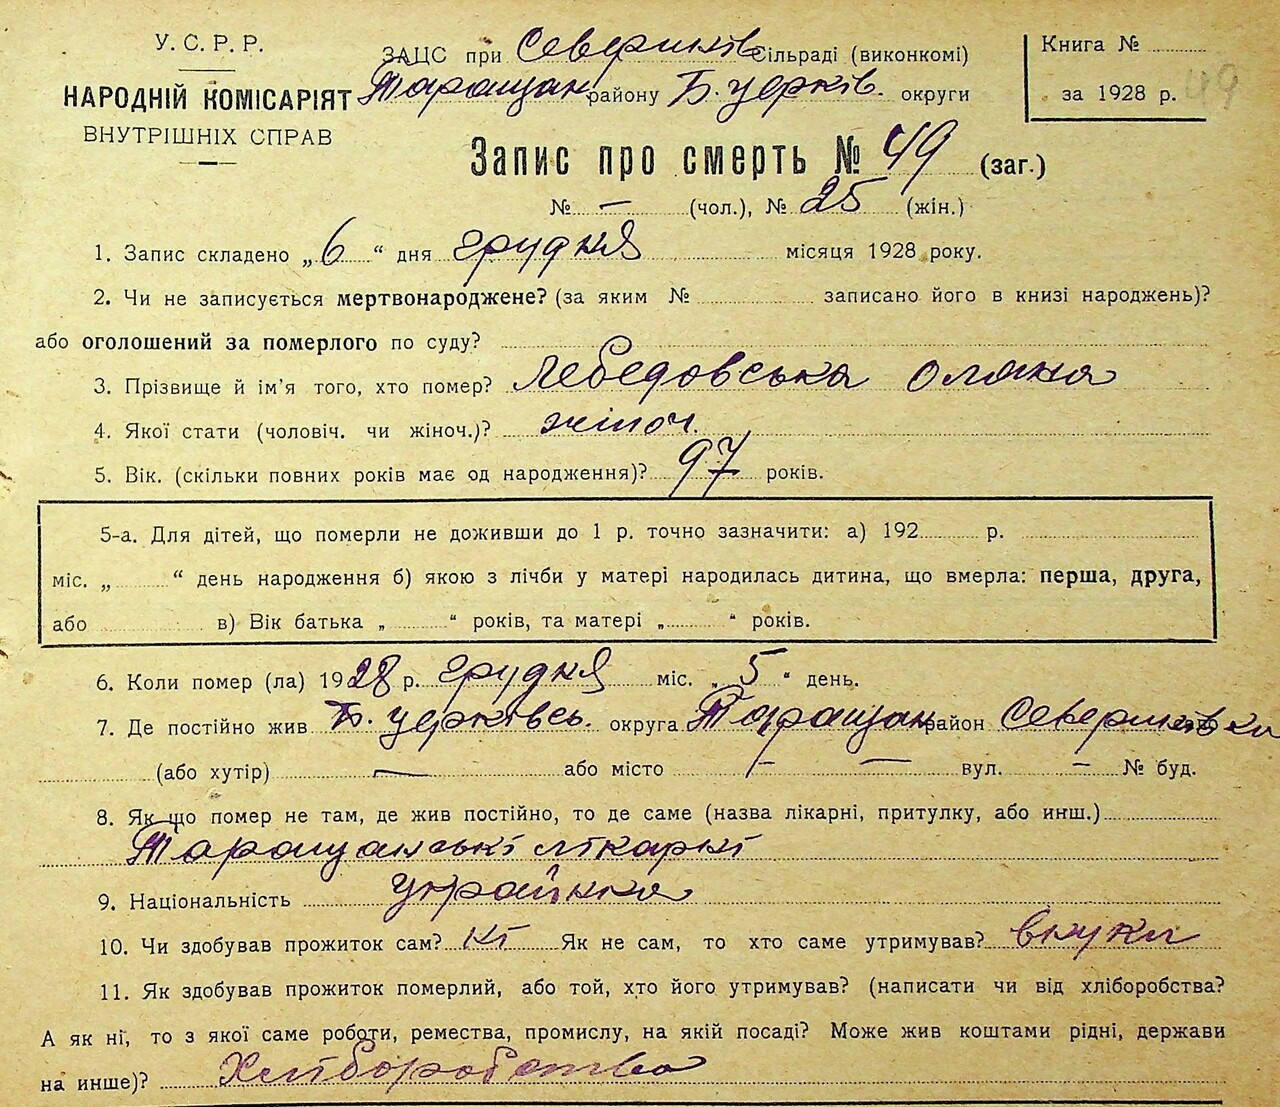 У. С. Р. Р.
НАРОДНІЙ КОМІСАРІЯТ
ВНУТРІШНІХ СПРАВ
ЗАЦС при Севериків Сільраді (виконкомі)
Таращан району Б. Церків. округи
Книга №
за 1928 р. 49
Запис про смерть № 49 (заг.)
№ — (чол.), № 25 (жін.)
1. Запис складено „ 6 “ дня грудня місяця 1928 року.
2. Чи не записується мертвонароджене? (за яким № записано його в книзі народжень)?
або оголошений за померлого по суду?
3. Прізвище й ім'я того, хто помер? Лебедовська Оляна
4. Якої стати (чоловіч. чи жіноч.)? жіноч.
5. Вік. (скільки повних років має од народження)? 97 років.
5-а. Для дітей, що померли не доживши до 1 р. точно зазначити: а) 192 р.
міс. „ “ день народження б) якою з лічби у матері народилась дитина, що вмерла: перша, друга,
або в) Вік батька „ “ років, та матері „ “ років.
6. Коли помер (ла) 1928 р. грудня міс. „ 5 “ день.
7. Де постійно жив Б. Церківсь. округа Таращан район Севериківка
(або хутір) — або місто — — вул. — № буд.
8. Як що помер не там, де жив постійно, то де саме (назва лікарні, притулку, або инш.)
Таращанські лікарні
9. Національність українка
10. Чи здобував прожиток сам? ні Як не сам, то хто саме утримував? внуки
11. Як здобував прожиток померлий, або той, хто його утримував? (написати чи від хліборобства?
А як ні, то з якої саме роботи, ремества, промислу, на якій посаді? Може жив коштами рідні, держави
на инше)? Хліборобство